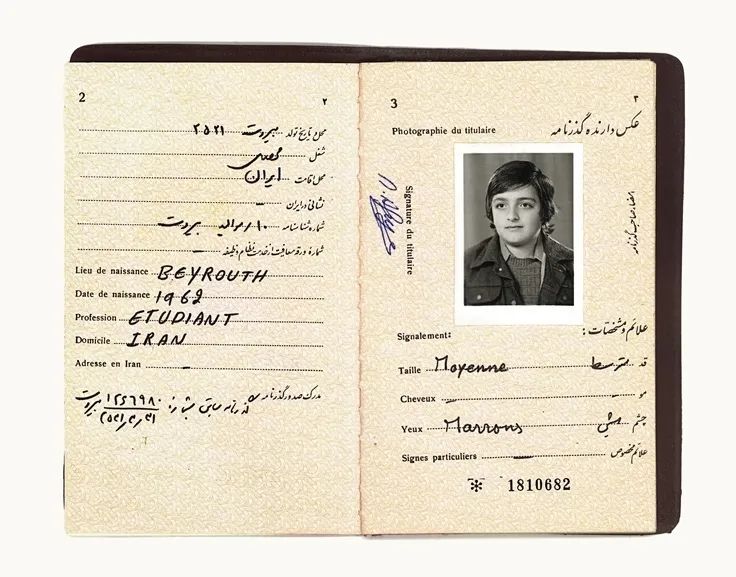 2 ۲
محل و تاریخ تولد بیروت ۲۵۲۱
شغل محصل
محل اقامت ایران
نشانی در ایران —
شماره شناسنامه ۱۰ / موالید بیروت
شماره ورقه معافیت از خدمت نظام وظیفه
Lieu de naissance BEYROUTH
Date de naissance 1962
Profession ETUDIANT
Domicile IRAN
Adresse en Iran —
مدرک صدور گذرنامه
بیروت
3 ۳
Photographie du titulaire عکس دارنده گذرنامه
Signature du titulaire
امضاء صاحب گذرنامه
Signalement: علائم و مشخصات :
Taille Moyenne متوسط قد
Cheveux — مو
Yeux Marrons میشی چشم
Signes particuliers — علائم مخصوص
✻ 1810682